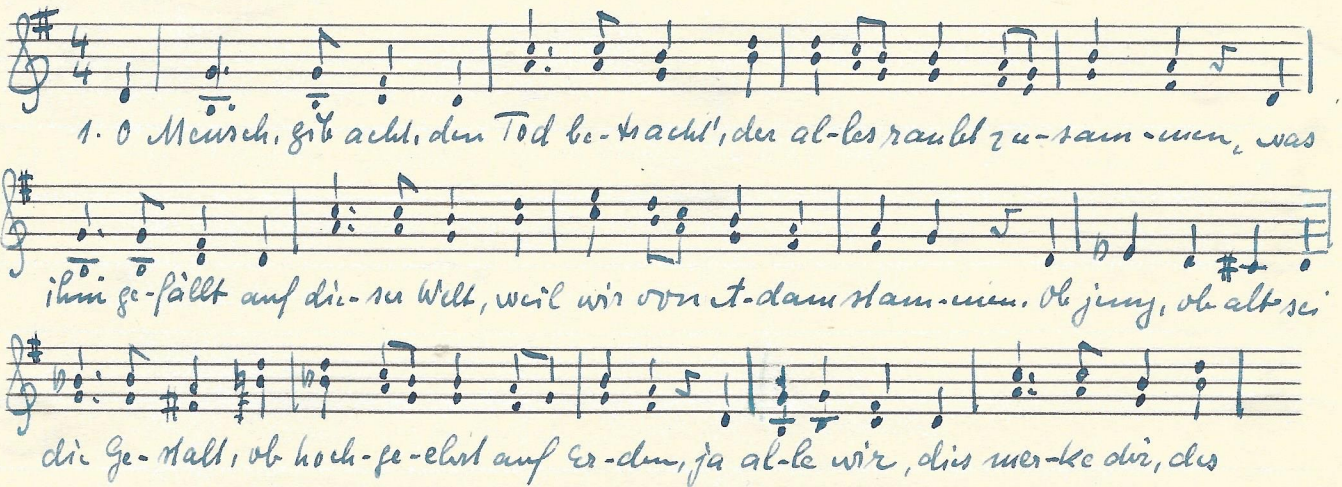 4 4
1. O Mensch, gib acht, den Tod be-tracht', der al-les raubt zu-sam-men, was
ihm ge-fällt auf die-ser Welt, weil wir von A-dam stam-men. Ob jung, ob alt sei
die Ge-stalt, ob hoch-ge-ehrt auf Er-den, ja al-le wir, dies mer-ke dir, des